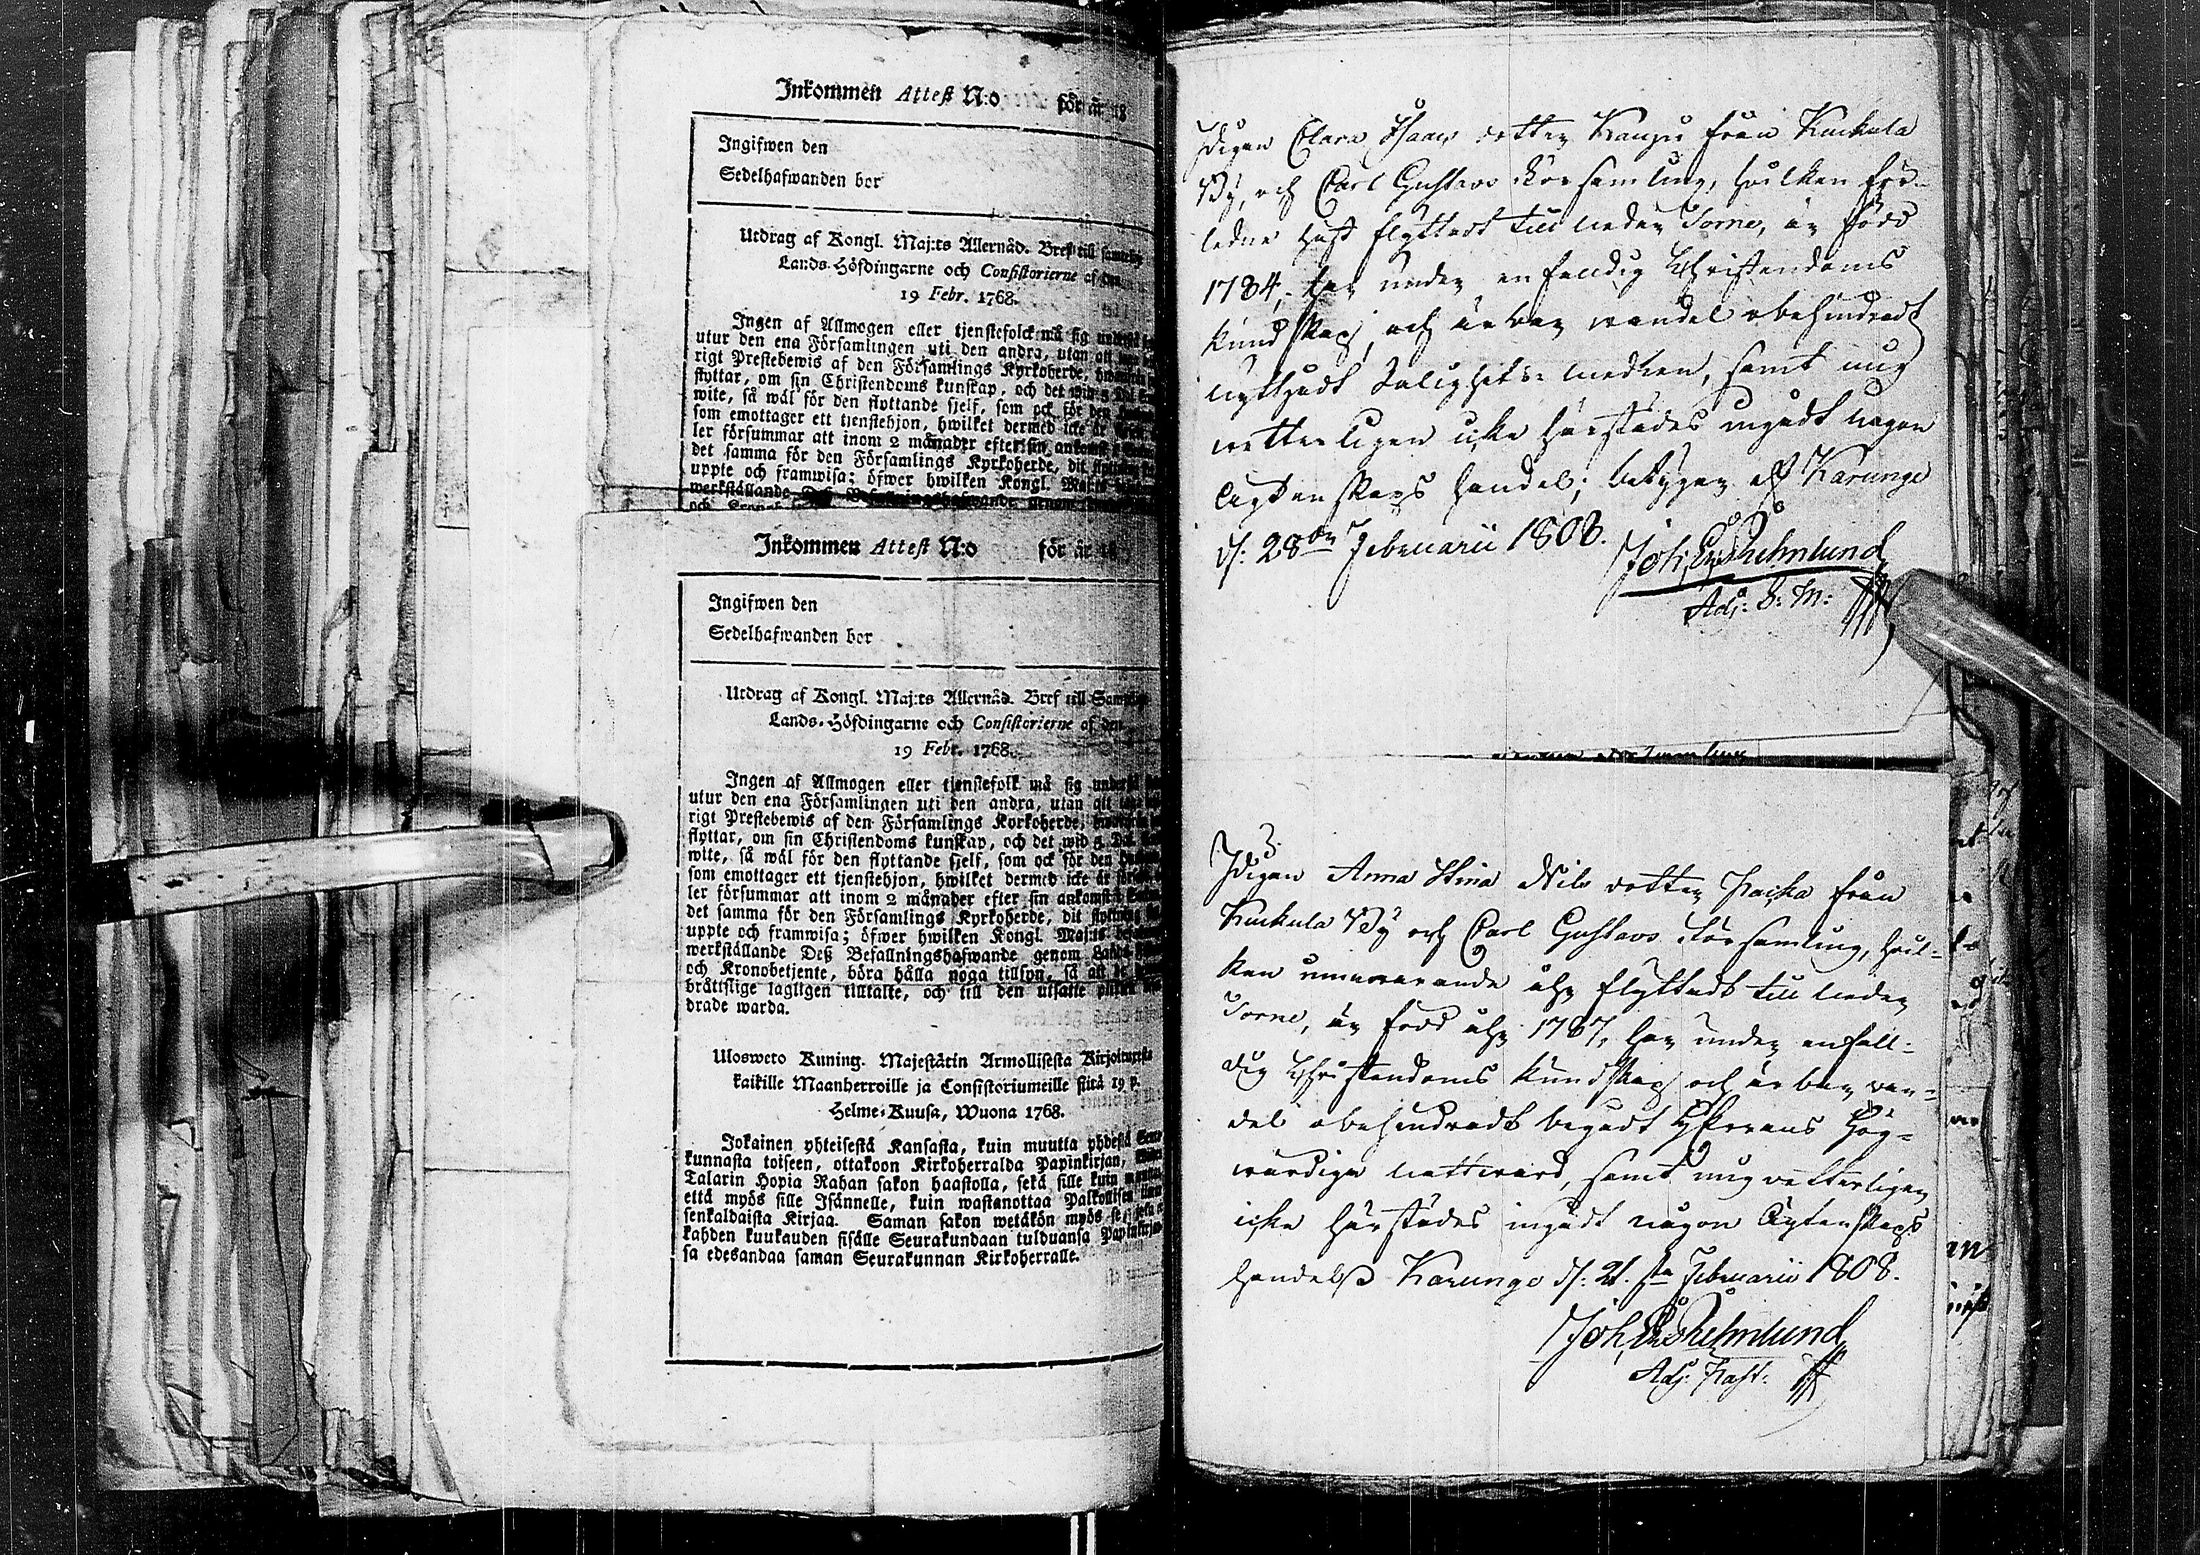 Inkommen Attest N:o för år 18
Ingifwen den
Sedelhafwanden bor
Utdrag af Kongl. Maj:ts Allernåd. Bref till samtelige
Lands-Höfdingarne och Consistorierne af den
19 Febr. 1768.
Ingen af Allmogen eller tjenstefolck må sig
utur den ena Församlingen uti den andra, utan att
rigt Prestebewis af den Församlings Kyrkoherde,
flyttar, om sin Christendoms kunskap, och det wid 5
wite, så wäl för den flyttande sjelf, som ock för den
som emottager ett tjenstehjon, hwilket dermed icke är
ler försummar att inom 2 månader efter sin ankomst
det samma för den Församlings Kyrkoherde, dit
uppte och framwisa; öfwer hwilken Kongl. Maj:ts
werkställande Deß Befallningshafwande genom
och
Inkommen Attest N:o för år 18
Ingifwen den
Sedelhafwanden bor
Utdrag af Kongl. Maj:ts Allernåd. Bref till
Lands-Höfdingarne och Consistorierne af den
19 Febr. 1768.
Ingen af Allmogen eller tjenstefolk må sig
utur den ena Församlingen uti den andra, utan att
rigt Prestebewis af den Församlings Kyrkoherde,
flyttar, om sin Christendoms kunskap, och det wid 5
wite, så wäl för den flyttande sjelf, som ock för den
som emottager ett tjenstehjon, hwilket dermed icke är
ler försummar att inom 2 månader efter sin ankomst
det samma för den Församlings Kyrkoherde, dit
uppte och framwisa; öfwer hwilken Kongl. Maj:ts
werkställande Deß Befallningshafwande genom
och Kronobetjente, böra hålla noga tillsyn, så att de
bråttslige lagligen tilltalte, och till den utsatte
drade warda.
Ulosweto Kuning. Majestätin Armollisesta Kirjoituxesta
kaikille Maanherroille ja Consistoriumeille siitä 19 p.
Helme-Kuusa, Wuona 1768.
Jokainen yhteisestä Kansasta, kuin muutta yhdestä
kunnasta toiseen, ottakoon Kirkoherralda Papinkirjan,
Talarin Hopia Rahan sakon haastolla, sekä sille kuin
että myös sille Isännelle, kuin wastanottaa Palkollisen
senkaldaista Kirjaa. Saman sakon wetäkön myös se
kahden kuukauden sisälle Seurakundaan tulduansa
sa edesandaa saman Seurakunnan Kirkoherralle.
Pigan Clara Isaacs dotter från Kuckula
By, och Carl Gustavs Församling, hvilken för-
ledne höst flyttadt till neder Torne, är född
1784, har under enfaldig Christendoms
kundskap, och ärbar vandel obehindradt
nyttjadt Salighets-medlen, samt mig
vetterligen icke härstädes ingådt någon
ägtenskaps handel; betygar af Karungi
d: 28de Februarii 1808.
Joh: Er: Rhehnlund
Adj: S: M:
Pigan Anna Stina Nils dotter Packa från
Kuckula By och Carl Gustavs Församling, hvil-
ken innevarande åhr flyttadt till neder
Torne, är född åhr 1787, har under enfall-
dig Christendoms kundskap och ärbar van-
del obehindradt begådt HErrans Hög-
värdiga nattvard, samt mig vetterligen
icke härstädes ingådt någon ägtenskaps
handel Karungi d: 21sta Februarii 1808.
Joh: Er: Rhehnlund
Adj: Past: